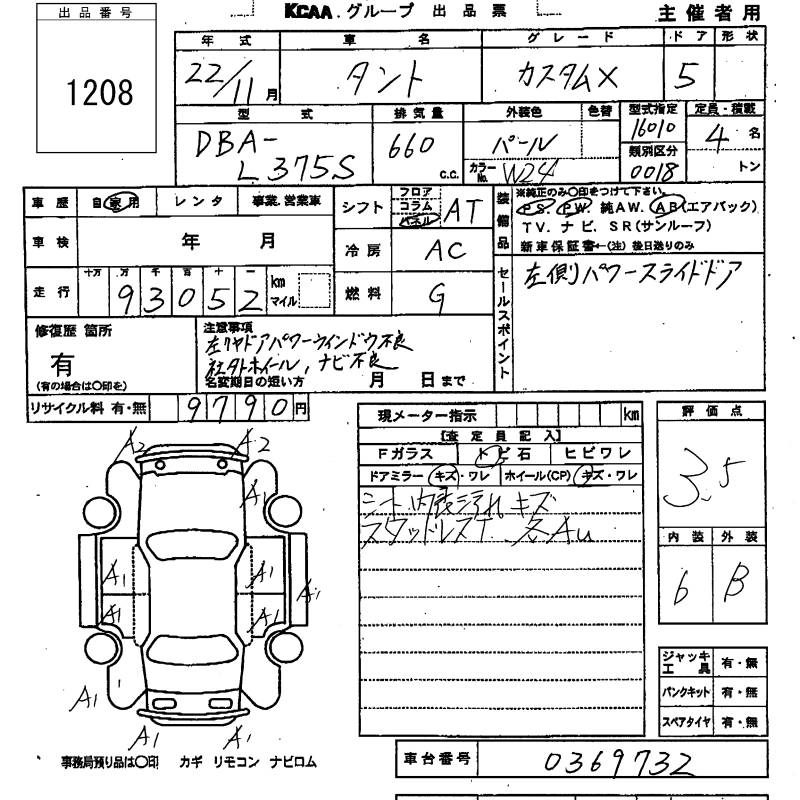 出品番号
1208
KCAA.グループ 出品票
主催者用
年式 車名 グレード ドア 形状
22/11月 タント カスタムX 5
型式 排気量 外装色 色替 型式指定 定員・積載
DBA-L375S 660 c.c. パール 16010 4名
カラーNo. W24 類別区分 0018 トン
車歴 自家用 レンタ 事業.営業車
車検 年 月
走行 十万 万 千 百 十 一 km マイル
93052
シフト フロア コラム パネル AT
冷房 AC
燃料 G
装備品 ※純正のみ○印をつけて下さい。
PS. PW. 純AW. AB(エアバック)
TV. ナビ. SR(サンルーフ)
新車保証書←(注)後日送りのみ
セールスポイント
左側パワースライドドア
修復歴 箇所
有
(有の場合は○印を)
注意事項
左リヤドアパワーウインドウ不良
社外ホイール, ナビ不良
名変期日の短い方 月 日まで
リサイクル料 有・無 9790円
現メーター指示 km
【査定員記入】
Fガラス トビ石 ヒビワレ
ドアミラー キズ・ワレ ホイール(CP) キズ・ワレ
シート、内装汚れ キズ
スタッドレスT 各Au
評価点
3.5
内装 外装
6 B
A2 A2
A1
A1 A1 A1
A1 A1
A1
A1 A1
ジャッキ工具 有・無
パンクキット 有・無
スペアタイヤ 有・無
事務局預り品は○印 カギ リモコン ナビロム
車台番号 0369732